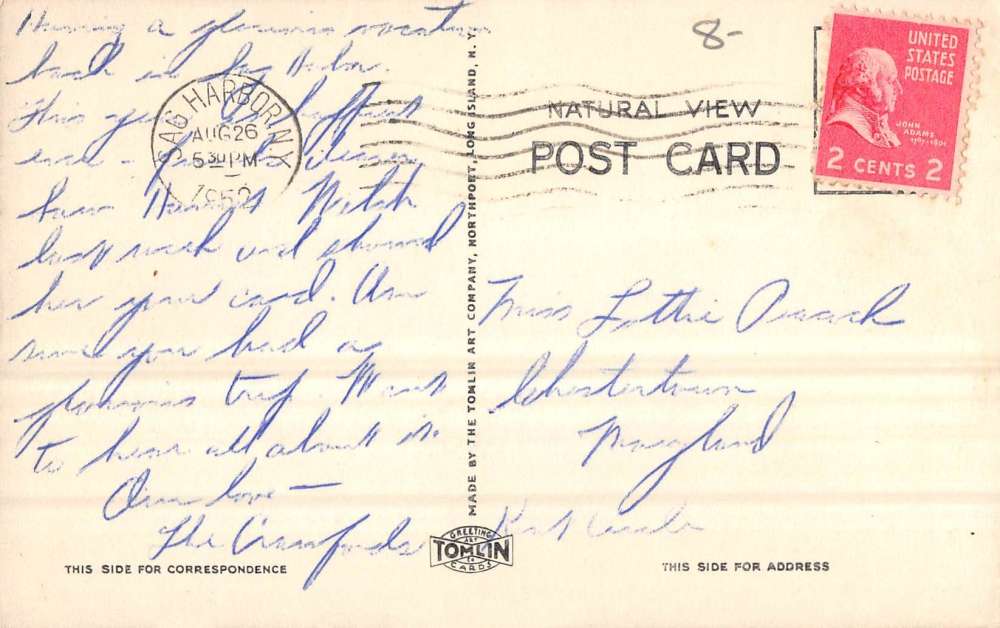 Having a glorious vacation
back in Sag Harbor.
This year
ever -
have Harriet
last week and showed
her your card. Am
sure you had a
glorious trip. Want
to hear all about it.
Our love —
The Crawfords
SAG HARBOR N.Y.
AUG 26
5 30 PM
1952
MADE BY THE TOMLIN ART COMPANY, NORTHPORT, LONG ISLAND, N. Y.
8-
NATURAL VIEW
POST CARD
UNITED
STATES
POSTAGE
JOHN
ADAMS
1797-1801
2 CENTS 2
Miss Lottie
Chestertown
Maryland
Kent
GREETING
ART
TOMLIN
CO
CARDS
THIS SIDE FOR CORRESPONDENCE
THIS SIDE FOR ADDRESS